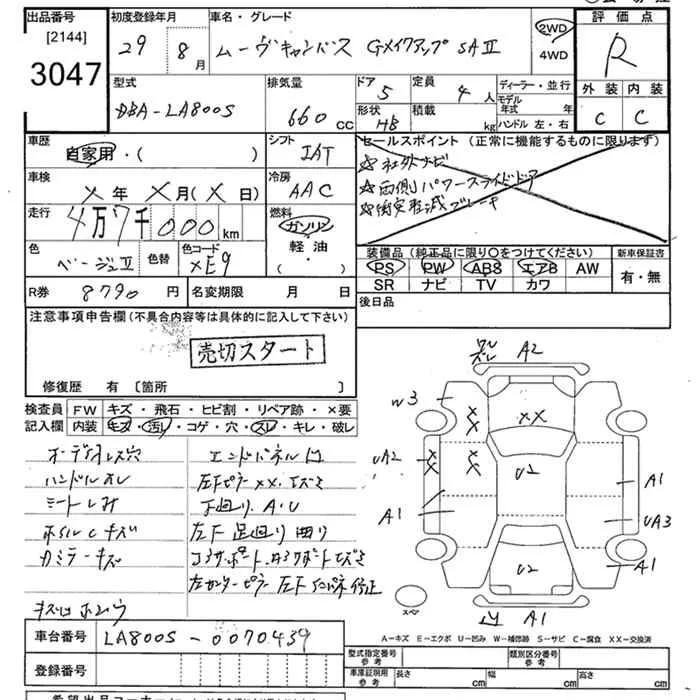 出品番号 初度登録年月 車名・グレード 評価点
[2144]
3047
29 8月 ムーヴキャンバス Gメイクアップ SAⅡ 2WD 4WD R
型式 排気量 ドア 5 定員 4人 ディーラー・並行 外装 内装
DBA-LA800S 660cc 形状 HB 積載 kg モデル年式 年 C C
ハンドル 左・右
車歴 シフト セールスポイント (正常に機能するものに限ります)
自家用・( ) IAT ☆社外ナビ
車検 冷房 ☆両側パワースライドドア
×年 ×月(×日) AAC ☆衝突軽減ブレーキ
走行 燃料
4万7千000km ガソリン
色 色替 色コード 軽油
ベージュⅡ XE9 ・( )
装備品 (純正品に限り○をつけてください) 新車保証書
PS PW ABS エアB AW 有・無
SR ナビ TV カワ
R券 8790円 名変期限 月 日 後日品
注意事項申告欄(不具合内容等は具体的に記入して下さい)
売切スタート
修復歴 有 〔箇所 〕
検査員 FW キズ・飛石・ヒビ割・リペア跡・×要
記入欄 内装 キズ・汚れ・コゲ・穴・スレ・キレ・破レ
オーディオレス穴 エンドパネル凹
ハンドルスレ 左Fピラー××、エズミ
シートしみ 下廻り A・U
ホイルCキズ 左F 足廻り 曲り
カミラーキズ
左センターピラー
A2
W3
XX
UA2
U2
A1
A1
UA3
A1
U2
スペア
A1
A-キズ E-エクボ U-凹み W-補修跡 S-サビ C-腐食 XX-交換済
車台番号 LA800S-0070439
登録番号
型式指定番号 参考 類別区分番号 参考
車庫証明用 参考 長さ cm 幅 cm 高さ cm